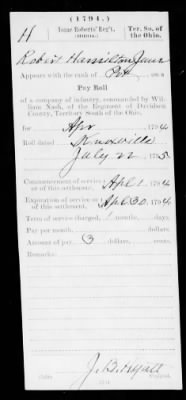 (1794.)
H
Isaac Roberts' Reg't,
Ter. So. of the Ohio.
Robert Hamilton
Appears with the rank of Pvt on a
Pay Roll
of a company of infantry, commanded by Wil-
liam Nash, of the Regiment of Davidson
County, Territory South of the Ohio,
for Apr, 1794
Roll dated Knoxville
July 22, 1795
Commencement of service or of this settlement, Apl. 1, 1794
Expiration of service or of this settlement, Apl. 30, 1794
Term of service charged, 1 months, days.
Pay per month, dollars.
Amount of pay, 3 dollars, cents.
Remarks:
Copyist.